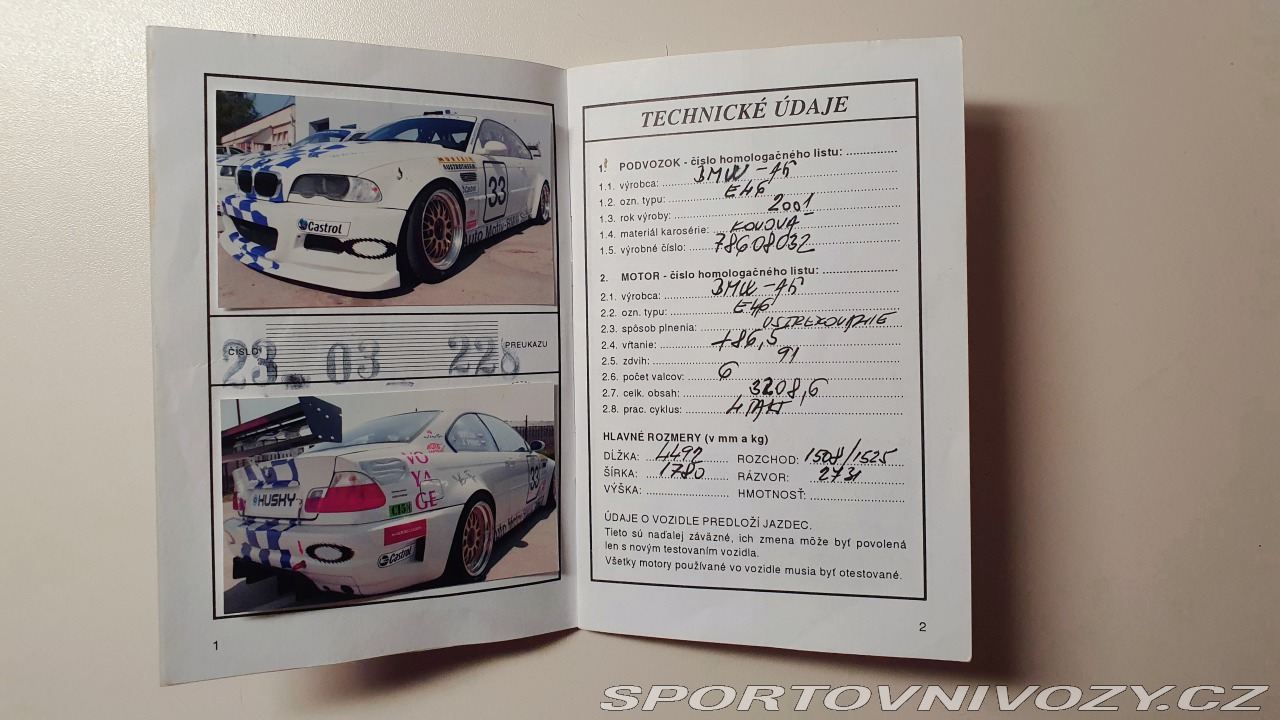 33
Castrol
Auto Moto
ČÍSLO
PREUKAZU
23. 03 226
VOYAGE
HUSKY
33
Castrol
Auto Moto
1
TECHNICKÉ ÚDAJE
1. PODVOZOK - číslo homologačného listu: ...............
1.1. výrobca: BMW - A5
1.2. ozn. typu: E46
1.3. rok výroby: 2001
1.4. materiál karosérie: KOVOVÁ
1.5. výrobné číslo: 78608032
2. MOTOR - číslo homologačného listu: ...............
2.1. výrobca: BMW - A5
2.2. ozn. typu: E46
2.3. spôsob plnenia: VSTREKOVANIE
2.4. vŕtanie: 86,5
2.5. zdvih: 91
2.6. počet valcov: 6
2.7. celk. obsah: 3208,6
2.8. prac. cyklus: 4 TAKT
HLAVNÉ ROZMERY (v mm a kg)
DĹŽKA: 4492 ROZCHOD: 1508/1525
ŠÍRKA: 1780 RÁZVOR: 2731
VÝŠKA: ............... HMOTNOSŤ: ...............
ÚDAJE O VOZIDLE PREDLOŽÍ JAZDEC.
Tieto sú naďalej záväzné, ich zmena môže byť povolená
len s novým testovaním vozidla.
Všetky motory používané vo vozidle musia byť otestované.
2
SPORTOVNIVOZY.CZ